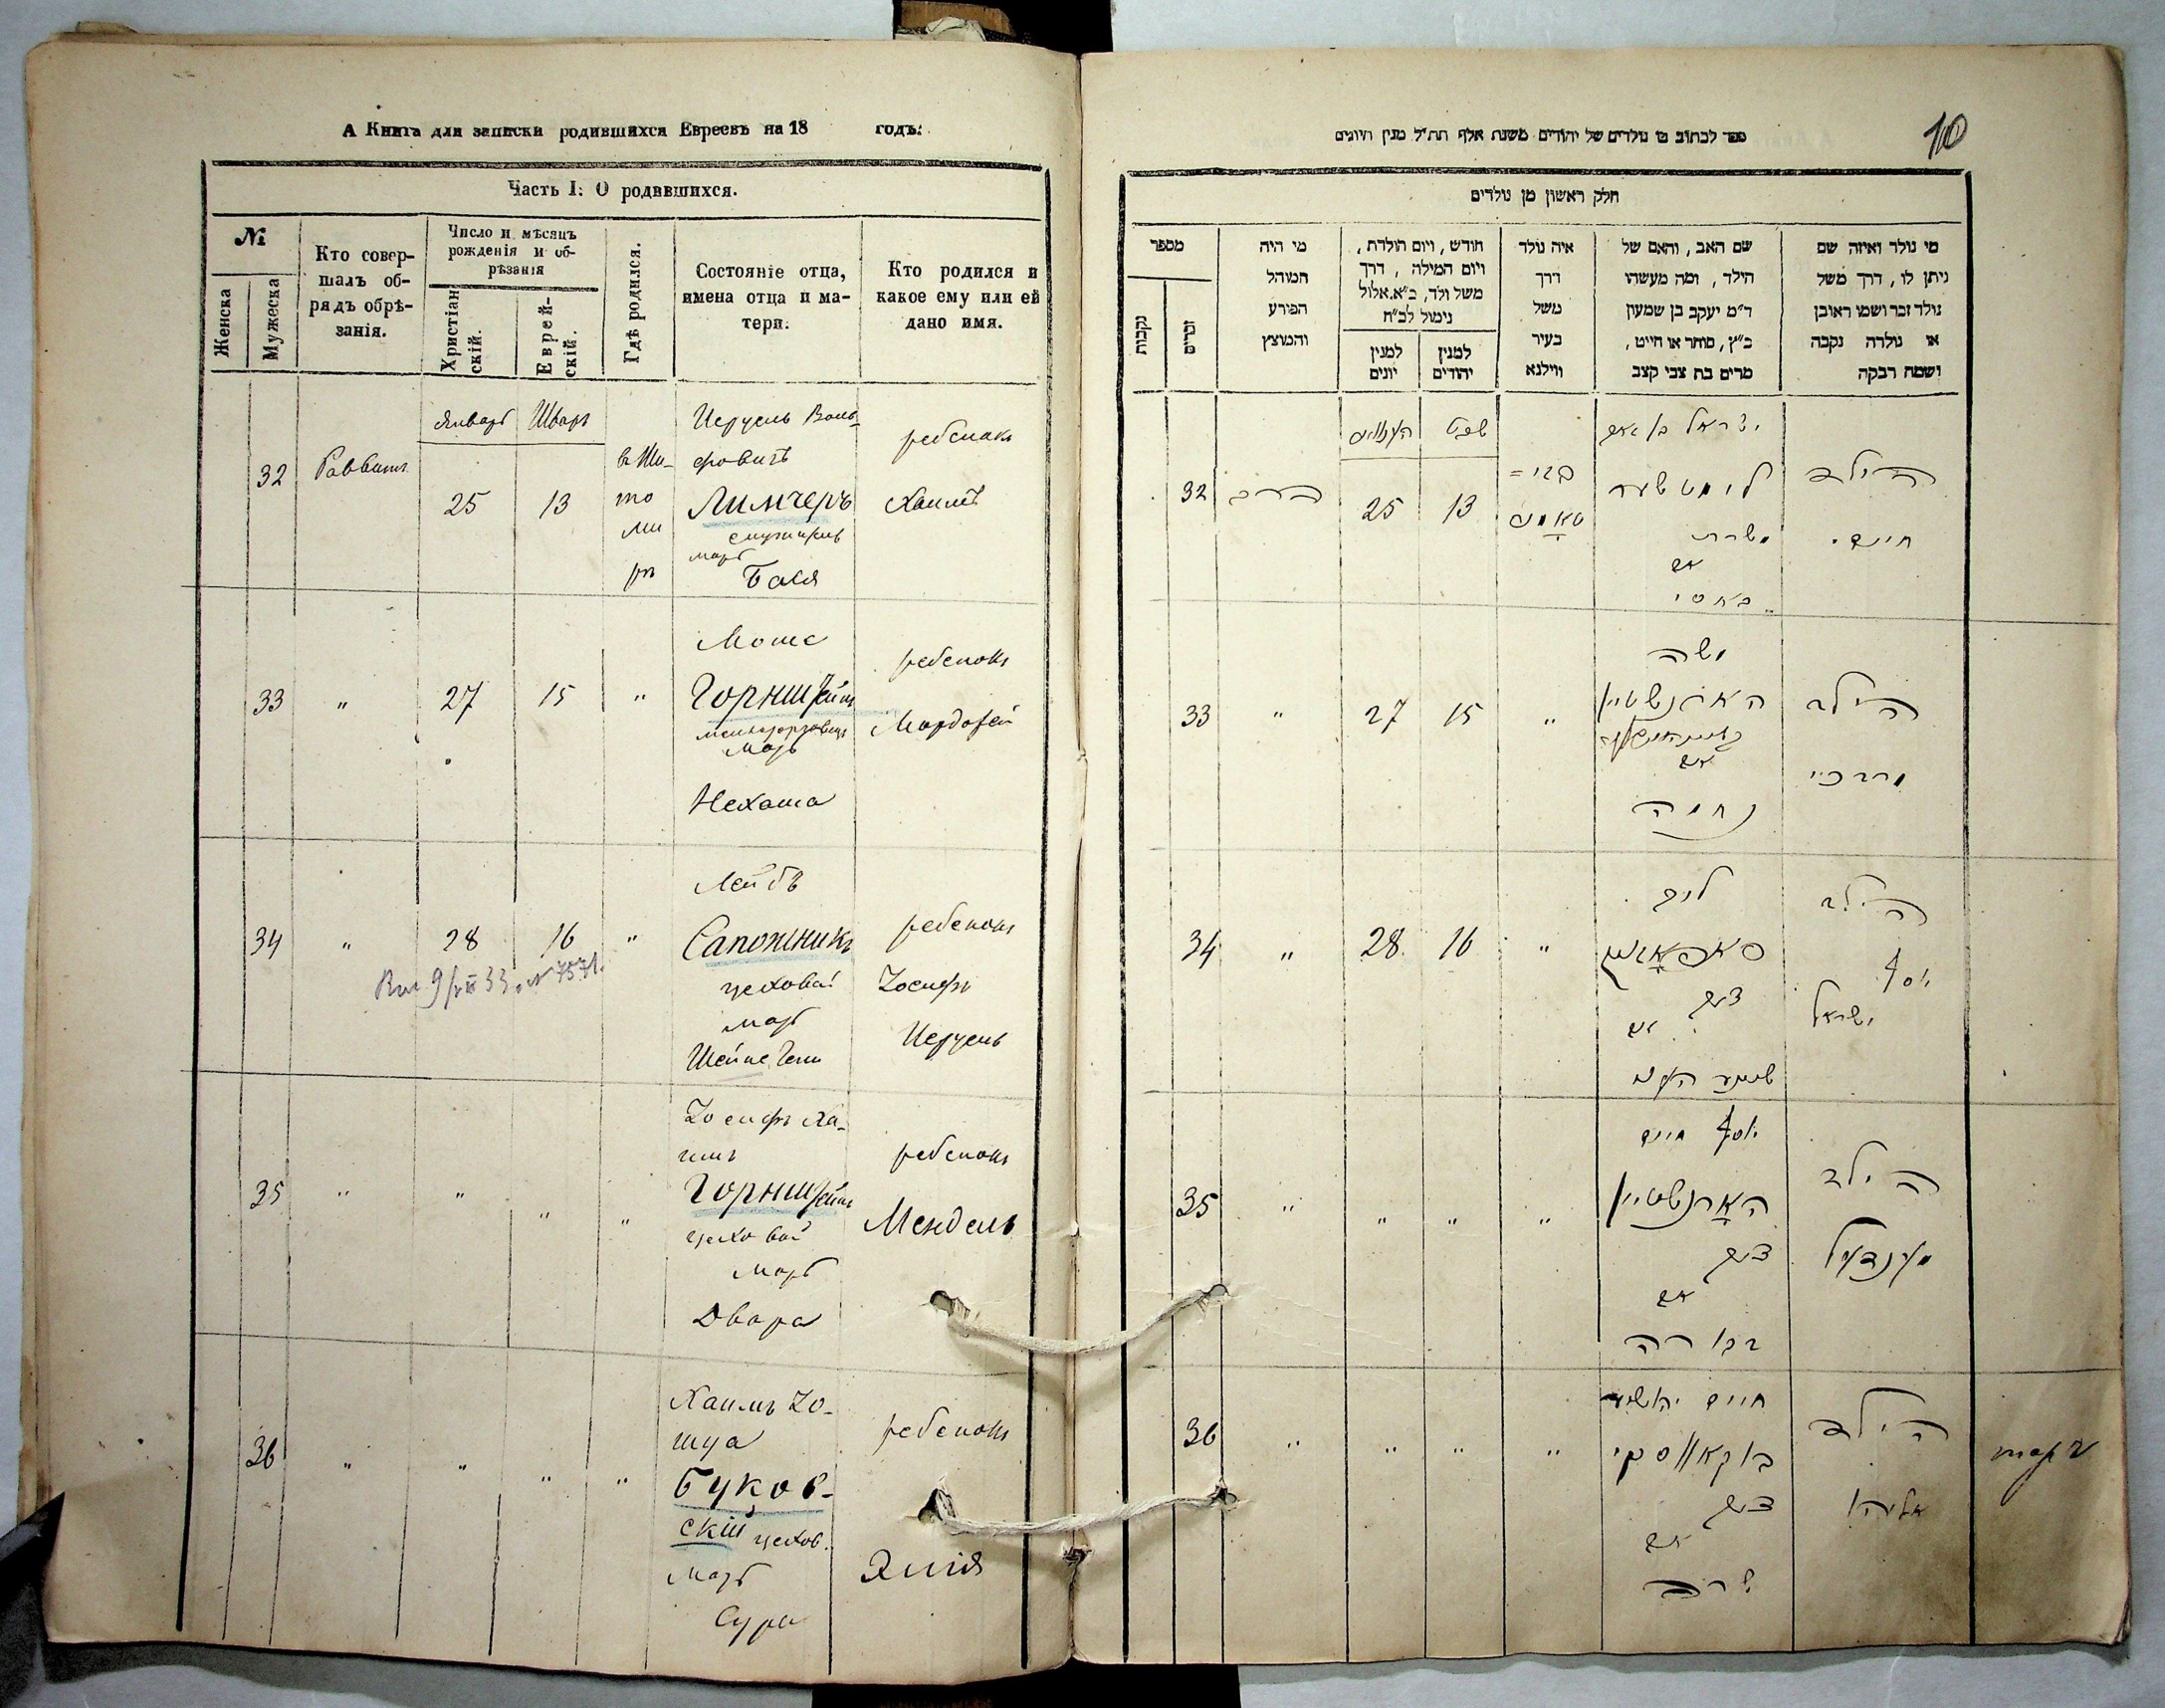 А Книга для записки родившихся Евреевъ на 18 годъ.
Часть I: О родившихся.
№
Женска
Мужеска
Кто совер-
шалъ об-
рядъ обрѣ-
занія.
Число и мѣсяцъ
рожденія и об-
рѣзанія
Христіан
скій.
Еврей-
скій.
Гдѣ родился.
Состояніе отца,
имена отца и ма-
тери.
Кто родился и
какое ему или ей
дано имя.
32
Раввинъ
Январь
25
Шватъ
13
въ Жи-
то
ми
рѣ
Лимчеръ
матъ
Бася
ребенокъ
Хаимъ
33
"
27
15
"
Моше
Горнштейнъ
матъ
Нехама
ребенокъ
Мордохей
34
"
28
16
"
Лейбъ
Сапожникъ
цеховой
матъ
ребенокъ
Іосифъ
35
"
"
"
"
Іосифъ Ха-
имъ
Горнштейнъ
цеховой
матъ
Двора
ребенокъ
Мендель
36
"
"
"
"
Хаимъ Іо-
шуа
Буков-
скій цехов.
матъ
Сура
ребенокъ
Элія
10
ספר לכתוב בו נולדים של יהודים משנת אלף תת״ל מנין היונים
חלק ראשון מן נולדים
מספר
נקבות
זכרים
מי היה
המוהל
הפורע
והמוצץ
חודש, ויום הולדת,
ויום המילה, דרך
משל ולד, כ״א אלול
נימול לכ״ח
למנין
יונים
למנין
יהודים
איה נולד
דרך
משל
בעיר
ווילנא
שם האב, והאם של
הילד, ומה מעשהו
ד״מ יעקב בן שמעון
כ״ץ, סוחר או חייט,
מרים בת צבי קצב
מי נולד ואיזה שם
ניתן לו, דרך משל
נולד זכר ושמו ראובן
או נולדה נקבה
ושמה רבקה
32
הרב
25
שבט
13
משרת
אם
באסי
הילד
חיים
33
"
27
15
"
משה
הארנשטיין
אם
נחמה
הילד
מרדכי
34
"
28
16
"
ליב
אם
הילד
יוסף
ישראל
35
"
"
"
"
יוסף חיים
הארנשטיין
צעך
אם
דבורה
הילד
מענדיל
36
"
"
"
"
חיים יהושע
בוקאווסקי
צעך
אם
שרה
הילד
אליהו